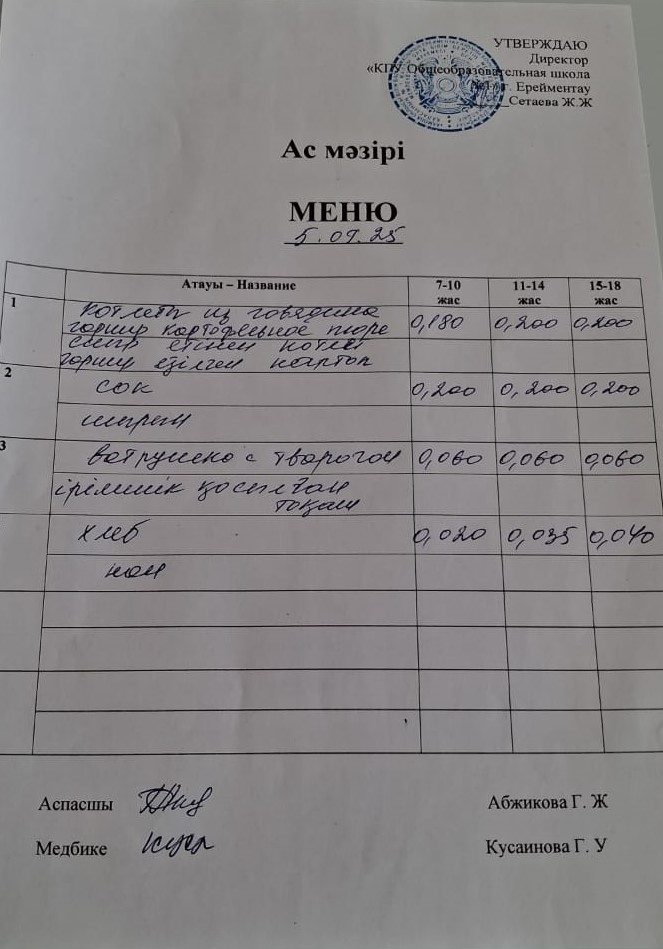 УТВЕРЖДАЮ
Директор
«КГУ Общеобразовательная школа
№1 г. Ерейментау
Сетаева Ж.Ж
Ас мәзірі
МЕНЮ
5.09.25
Атауы – Название 7-10 жас 11-14 жас 15-18 жас
1 котлеты из говядины
гарнир картофельное пюре 0,180 0,200 0,200
сиыр етінен котлет
гарнир езілген картоп
2 сок 0,200 0,200 0,200
шырын
3 ватрушка с творогом 0,060 0,060 0,060
ірімшік қосылған
тоқаш
хлеб 0,020 0,035 0,040
нан
Аспасшы Абжикова Г. Ж
Медбике Кусаинова Г. У